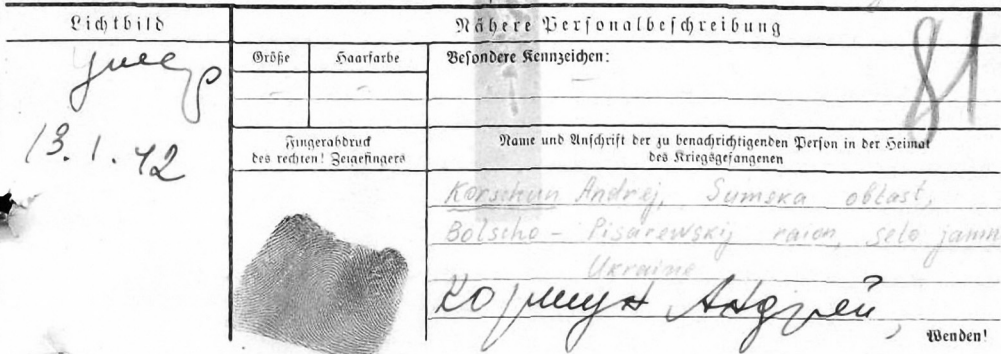 Lichtbild
Nähere Personalbeschreibung
81
умер
13.1.42
Größe
Haarfarbe
Besondere Kennzeichen:
Fingerabdruck
des rechten! Zeigefingers
Name und Anschrift der zu benachrichtigenden Person in der Heimat
des Kriegsgefangenen
Korschun Andrej, Sumska obłast,
Bolscho - Pisarewskij raion, selo jamn
Ukraine
Коршун Андрей,
Wenden!